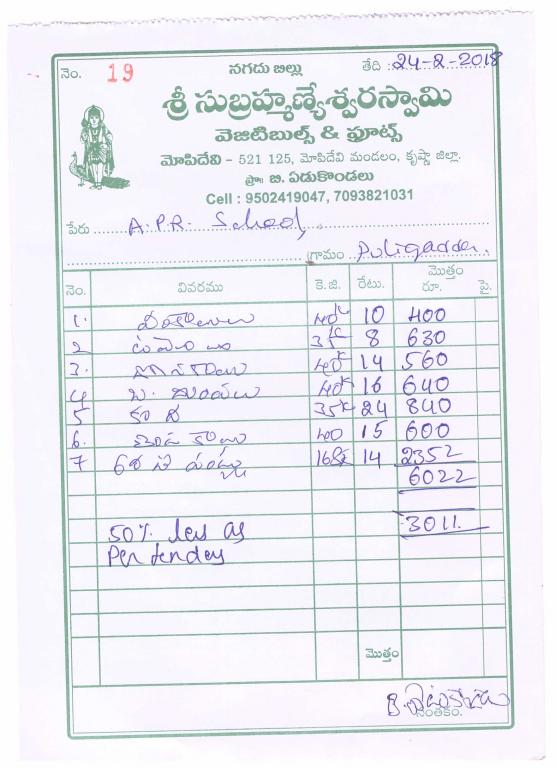 నం. 19 నగదు బిల్లు తేది : 24-2-2018
శ్రీ సుబ్రహ్మణ్యేశ్వరస్వామి
వెజిటిబుల్స్ & ఫ్రూట్స్
మోపిదేవి - 521 125, మోపిదేవి మండలం, కృష్ణా జిల్లా.
ప్రొ॥ బి. ఏడుకొండలు
Cell : 9502419047, 7093821031
పేరు A.P.R. School,
గ్రామం Puligadda.
నం. వివరము కె.జి. రేటు. మొత్తం రూ. పై.
1. 40K 10 400
2 35K 8 630
3. 40K 14 560
4 40K 16 640
5 35K 24 840
6. 40 15 600
7 168K 14 2352
6022
50% les as 3011.
Per tender
మొత్తం
సంతకం.